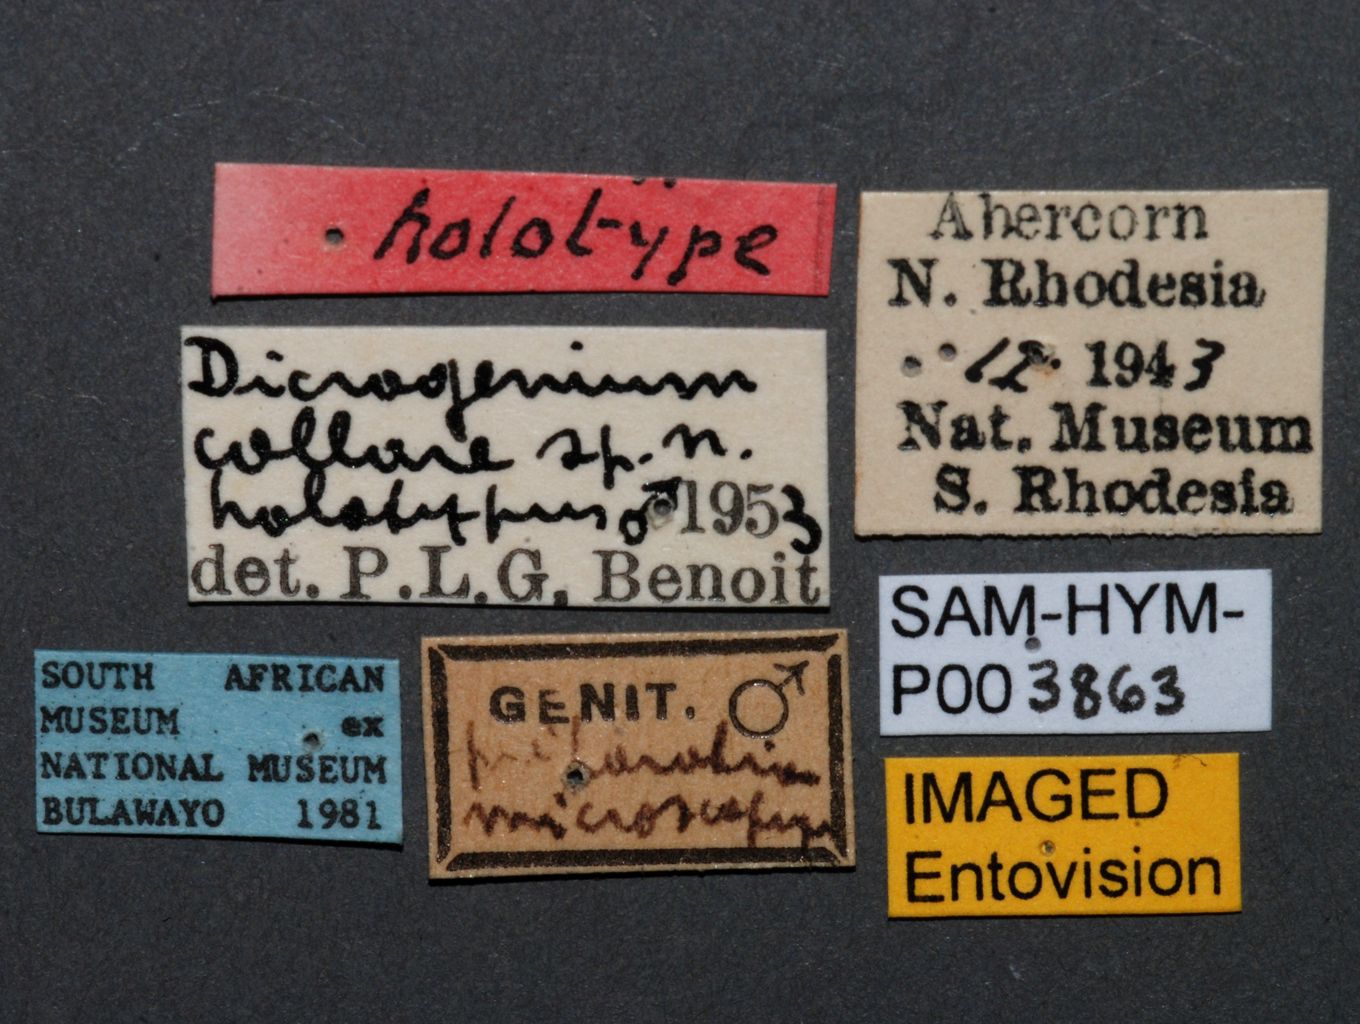 holotype
Dicrogenium
collare sp. n.
holotypus ♂ 1953
det. P.L.G. Benoit
Abercorn
N. Rhodesia
12. 1943
Nat. Museum
S. Rhodesia
SOUTH AFRICAN
MUSEUM ex
NATIONAL MUSEUM
BULAWAYO 1981
GENIT. ♂
SAM-HYM-
P003863
IMAGED
Entovision